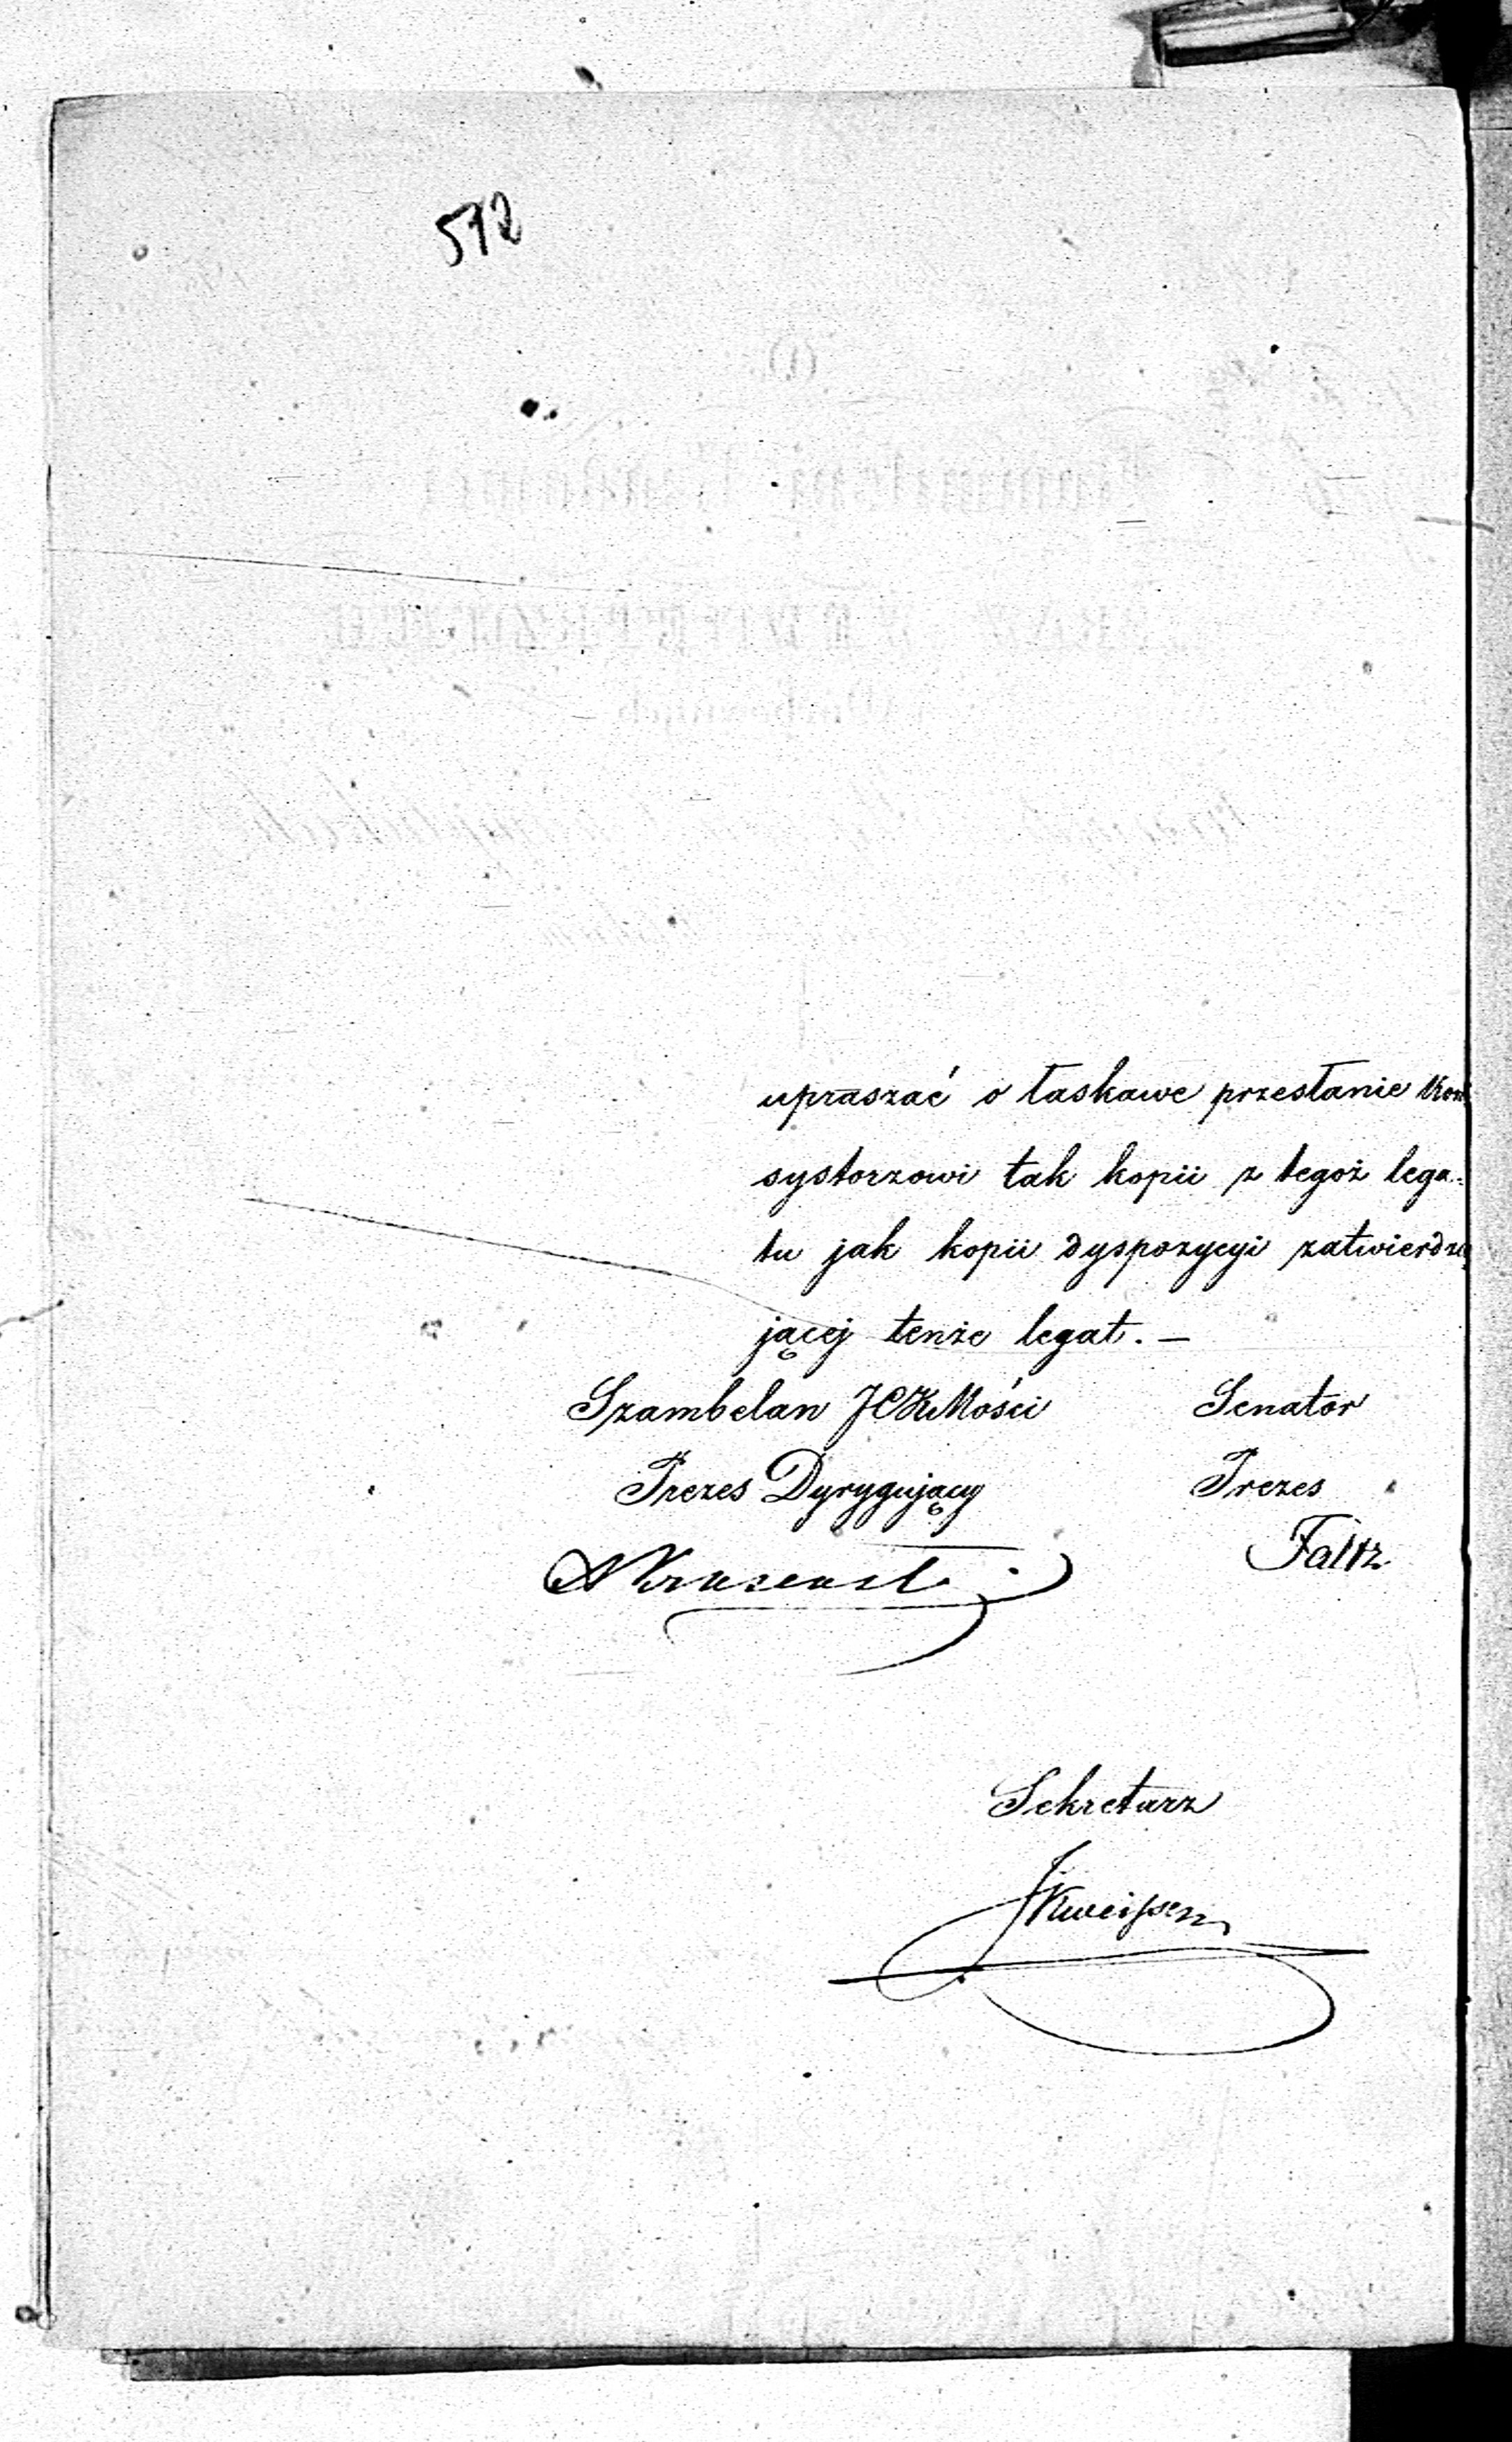 572
upraszać o łaskawe przesłanie Kon
systorzowi tak kopii z tegoż lega=
tu jak kopii dyspozycyi zatwierdza
jącej tenże legat. —
Szambelan JCKMości Senator
Prezes Dyrygujący Prezes
Faltz
Sekretarz